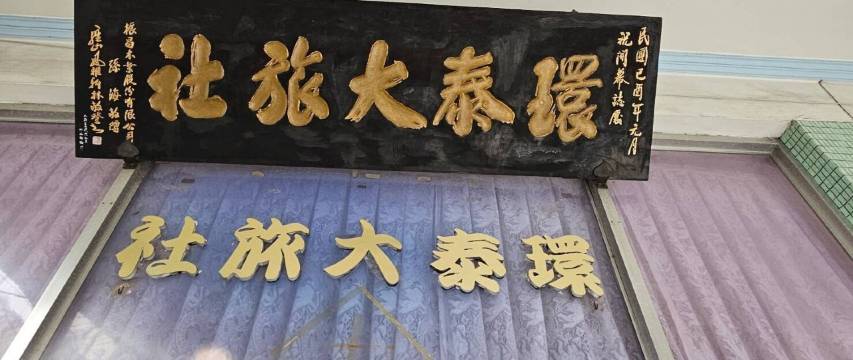 民國己酉年元月
祝開幕誌慶
環泰大旅社
振昌木業股份有限公司
孫海敬贈
環泰大旅社